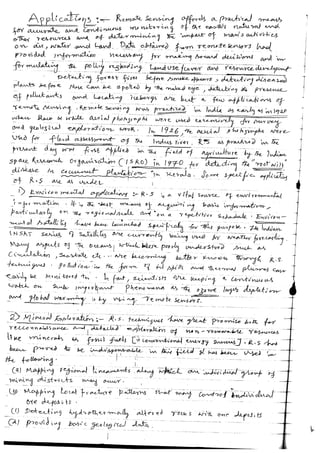 Applications :- Remote Sensing offers a practical means
for accurate and continuous monitoring of the earth's natural and
other resources and of determining the impact of man's activities
on air, water and land. Data obtained from remote sensors had
provided information necessary for making sound decisions and in
formulating the policy regarding land use/cover and resource development
Detecting forest fires before smoke appears, detecting diseased
plants before these can be spotted by the naked eye, detecting the presence
of pollutants and locating icebergs are but a few applications of
remote sensing. Remote sensing was practiced in India as early as in 1920
where Black & white aerial photographs were used extensively for survey
and geological exploration work. In 1926, the aerial photographs were
used for flood assessment of the Indus River. R.S as practiced in the
present day was first applied in the field of agriculture by the Indian
Space Research Organisation (ISRO) in 1970 for detecting the "root wilt"
disease in coconut plantation in Kerala. Some specific applications
of R.S. are as under
1) Environmental applications :- R.S is a vital source of environmental
information. It is the best means of acquiring basic information,
particularly on the regional scale and on a repetitive schedule. Environ-
mental satellites have been launched specifically for this purpose. The Indian
INSAT series of satellites are currently being used for weather forecasting.
Many aspects of the oceans, which were poorly understood such as
Circulation, Sea state etc... are becoming better known through R.S.
techniques. Pollution in the form of oil spills and thermal plumes can
easily be monitored too. In fact, scientists are keeping a continuous
watch on such important phenomena as the ozone layer depletion
and global warming is by using remote sensors.
2) Mineral Exploration :- R.S. techniques have great promise both for
reconnaissance and detailed exploration of non-renewable resources
like minerals & fossil fuels [conventional energy sources]. R.S has
been proved to be indispensable in this field & has been used in
the following:
(a) Mapping regional lineaments along which an individual group of
mining districts may occur.
(b) Mapping local fracture patterns that may control individual
ore deposits.
(c) Detecting hydrothermally altered rocks with ore deposits
(d) Providing basic geological data.